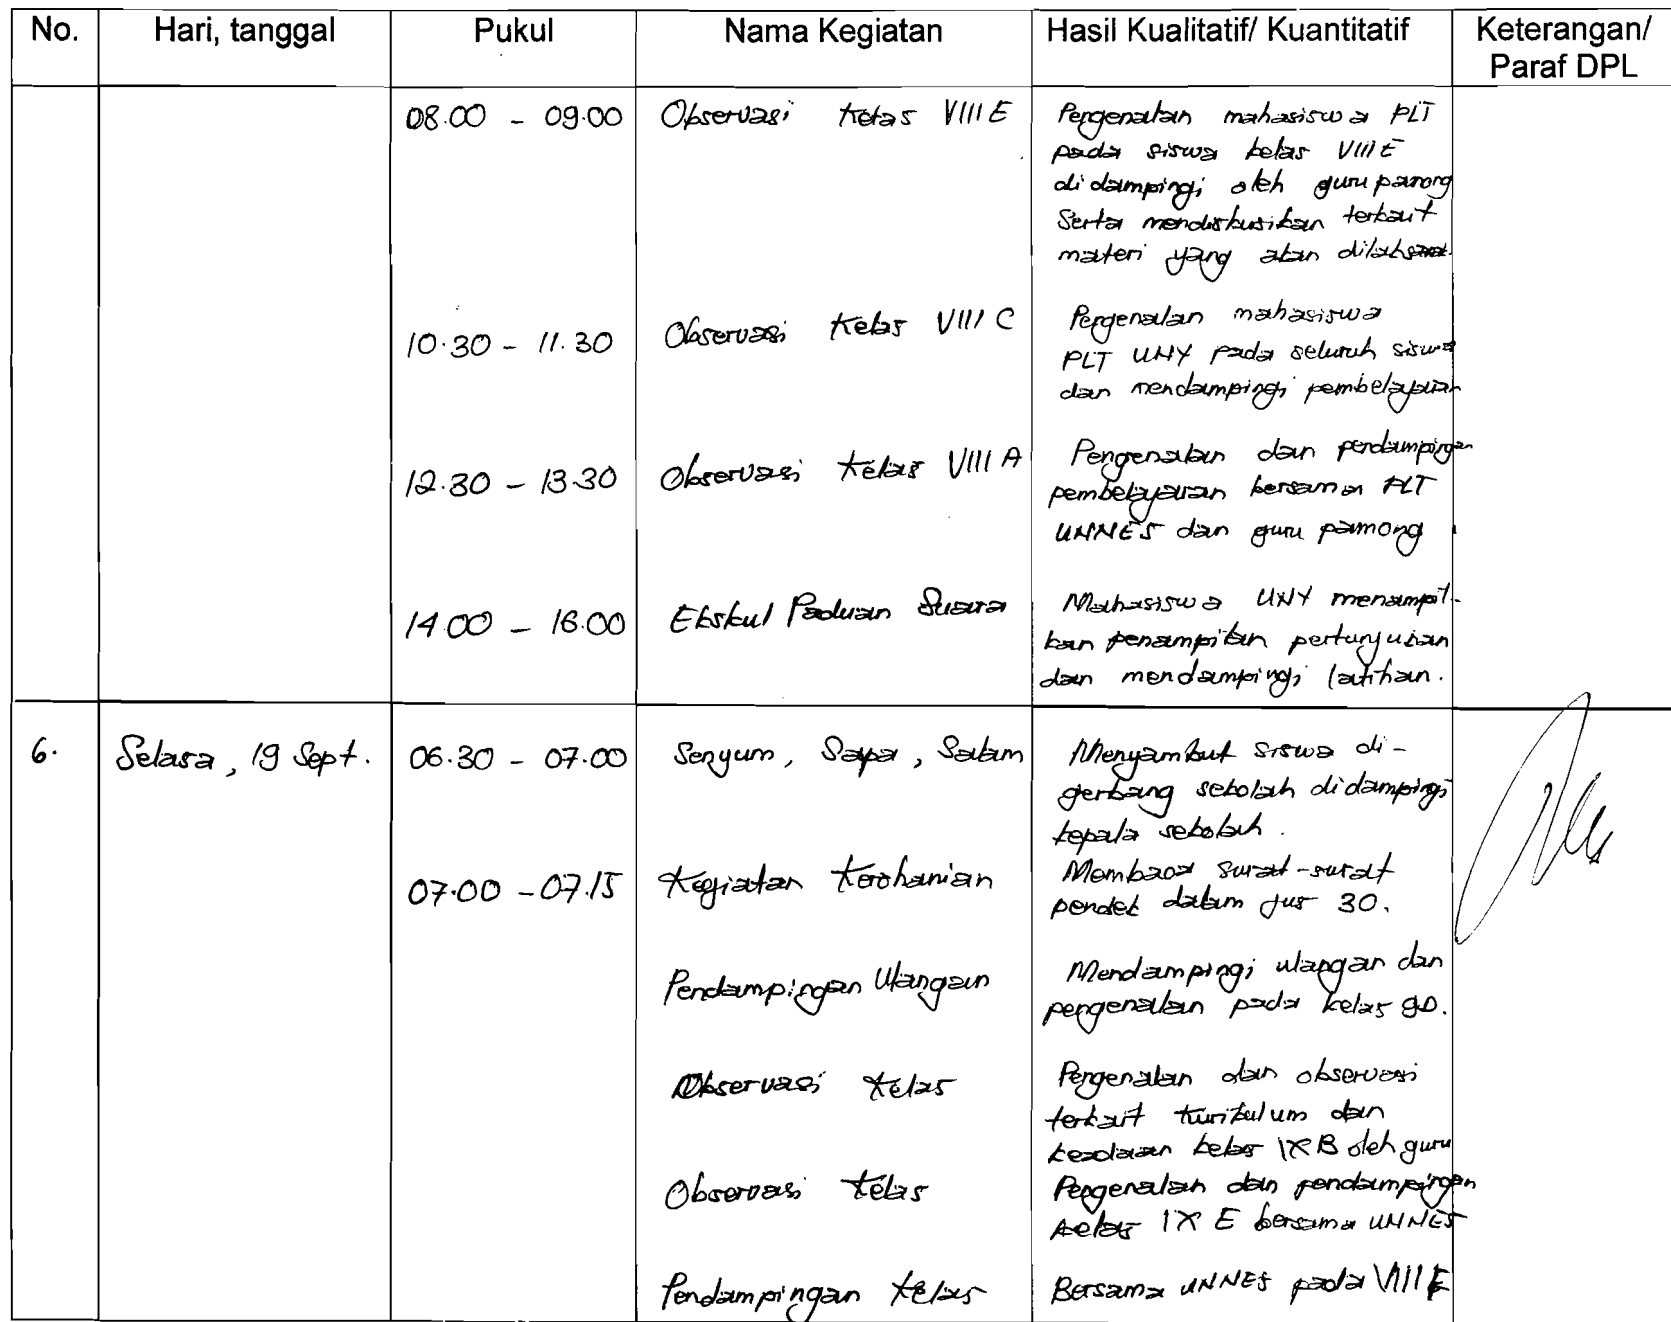 No. Hari, tanggal Pukul Nama Kegiatan Hasil Kualitatif/ Kuantitatif Keterangan/
Paraf DPL
08.00 - 09.00 Observasi Kelas VIII E Pengenalan mahasiswa PLT
pada siswa kelas VIII E
didampingi oleh guru pamong
serta mendiskusikan terkait
materi yang akan
10.30 - 11.30 Observasi Kelas VIII C Pengenalan mahasiswa
PLT UNY pada seluruh siswa
dan mendampingi pembelajaran
12.30 - 13.30 Observasi Kelas VIII A Pengenalan dan pendampingan
pembelajaran bersama PLT
UNNES dan guru pamong
14.00 - 16.00 Ekskul Paduan Suara Mahasiswa UNY menampil-
kan penampilan pertunjukan
dan mendampingi latihan.
6. Selasa, 19 Sept. 06.30 - 07.00 Senyum, Sapa, Salam Menyambut siswa di-
gerbang sekolah didampingi
kepala sekolah.
07.00 - 07.15 Kegiatan Kerohanian Membaca surat-surat
pendek dalam jus 30.
Pendampingan Ulangan Mendampingi ulangan dan
pengenalan pada kelas 9D.
Observasi Kelas Pengenalan dan observasi
terkait kurikulum dan
keadaan kelas IX B oleh guru
Observasi Kelas Pengenalan dan pendampingan
kelas IX E bersama UNNES
Pendampingan Kelas Bersama UNNES pada VIII E